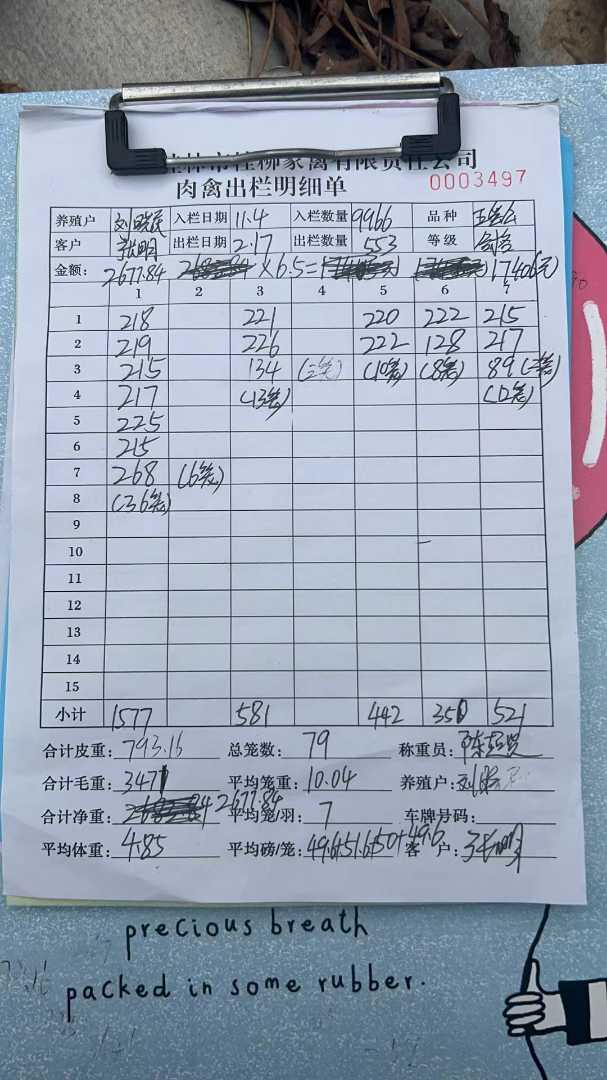 桂林市桂柳家禽有限责任公司
肉禽出栏明细单 0003497
养殖户 入栏日期 11.4 入栏数量 9966 品种
客户 张明 出栏日期 2.17 出栏数量 553 等级 合格
金额: 2677.84 ×6.5= 17406(元)
1 2 3 4 5 6 7
1 218 221 220 222 215
2 219 226 222 128 217
3 215 134 (二笼) (10笼) (8笼) 89
4 217 (13笼) (12笼)
5 225
6 215
7 268 (6笼)
8 (36笼)
9
10
11
12
13
14
15
小计 1577 581 442 350 521
合计皮重: 793.16 总笼数: 79 称重员:
合计毛重: 3471 平均笼重: 10.04 养殖户:
合计净重: 2677.84 平均笼/羽: 7 车牌号码:
平均体重: 4.85 平均磅/笼: 49.6+51.6+50+49.6 客户:
precious breath
packed in some rubber.